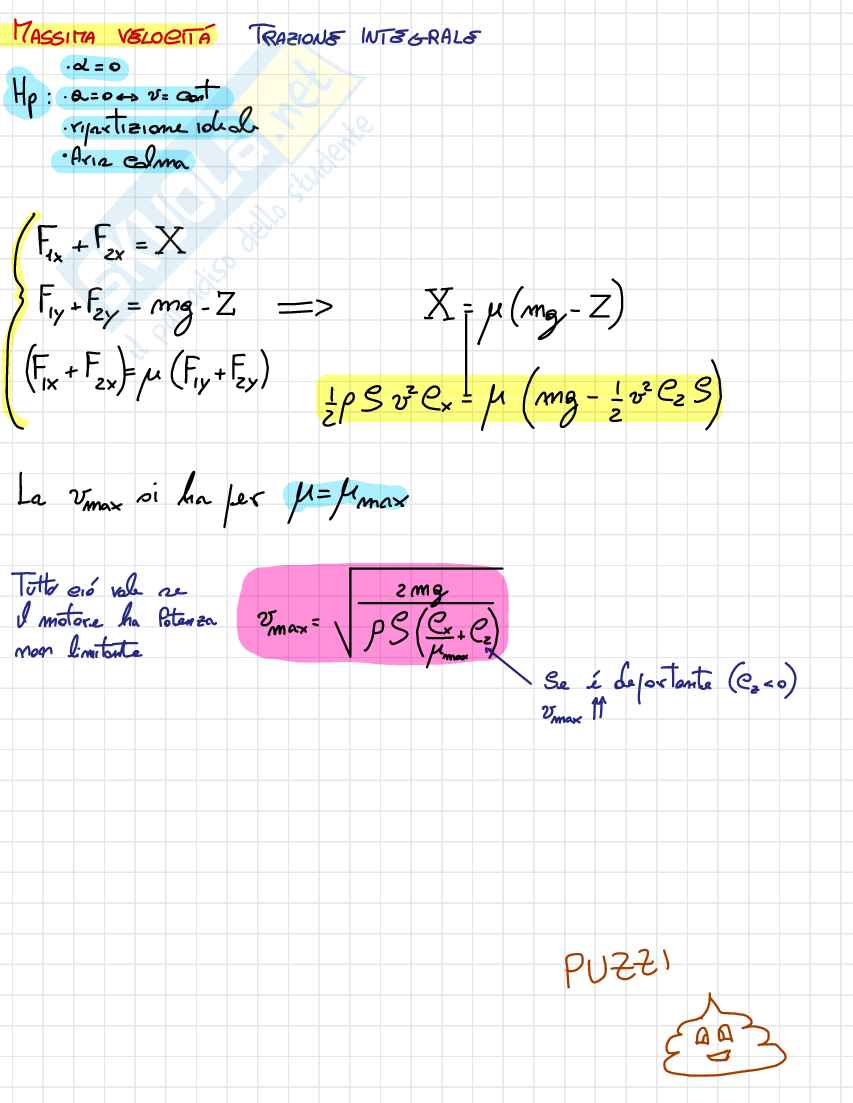 MASSIMA VELOCITÁ TRAZIONE INTEGRALE
Hp: · α=0
· a=0 ↔ v=cost
· ripartizione ideale
· Aria calma
SKUOLA.net
il paradiso dello studente
F₁ₓ + F₂ₓ = X
F₁y + F₂y = mg - Z ⟹ X = μ(mg - Z)
(F₁ₓ + F₂ₓ) = μ (F₁y + F₂y)
½ρ S v² Cₓ = μ (mg - ½ v² C_z S)
La v_max si ha per μ = μ_max
Tutto ció vale se
il motore ha Potenza
non limitante
v_max = √(2mg / (ρS(Cₓ/μ_max + C_z)))
Se é deportante (C_z<0)
v_max ⇈
PUZZI